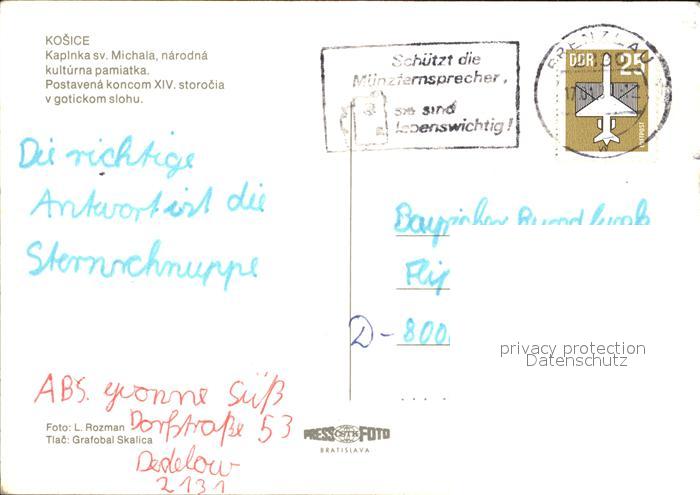 KOŠICE
Kaplnka sv. Michala, národná
kultúrna pamiatka.
Postavená koncom XIV. storočia
v gotickom slohu.
Schützt die
Münzfernsprecher,
sie sind
lebenswichtig!
PRENZLAU
DDR 25
LUFTPOST
Die richtige
Antwort ist die
Sternschnuppe
Bayrischer Rundfunk
Flip
D-800
privacy protection
Datenschutz
ABS. Yvonne Süß
Dorfstraße 53
Dedelow
2131
Foto: L. Rozman
Tlač: Grafobal Skalica
PRESS ČSTK FOTO
BRATISLAVA